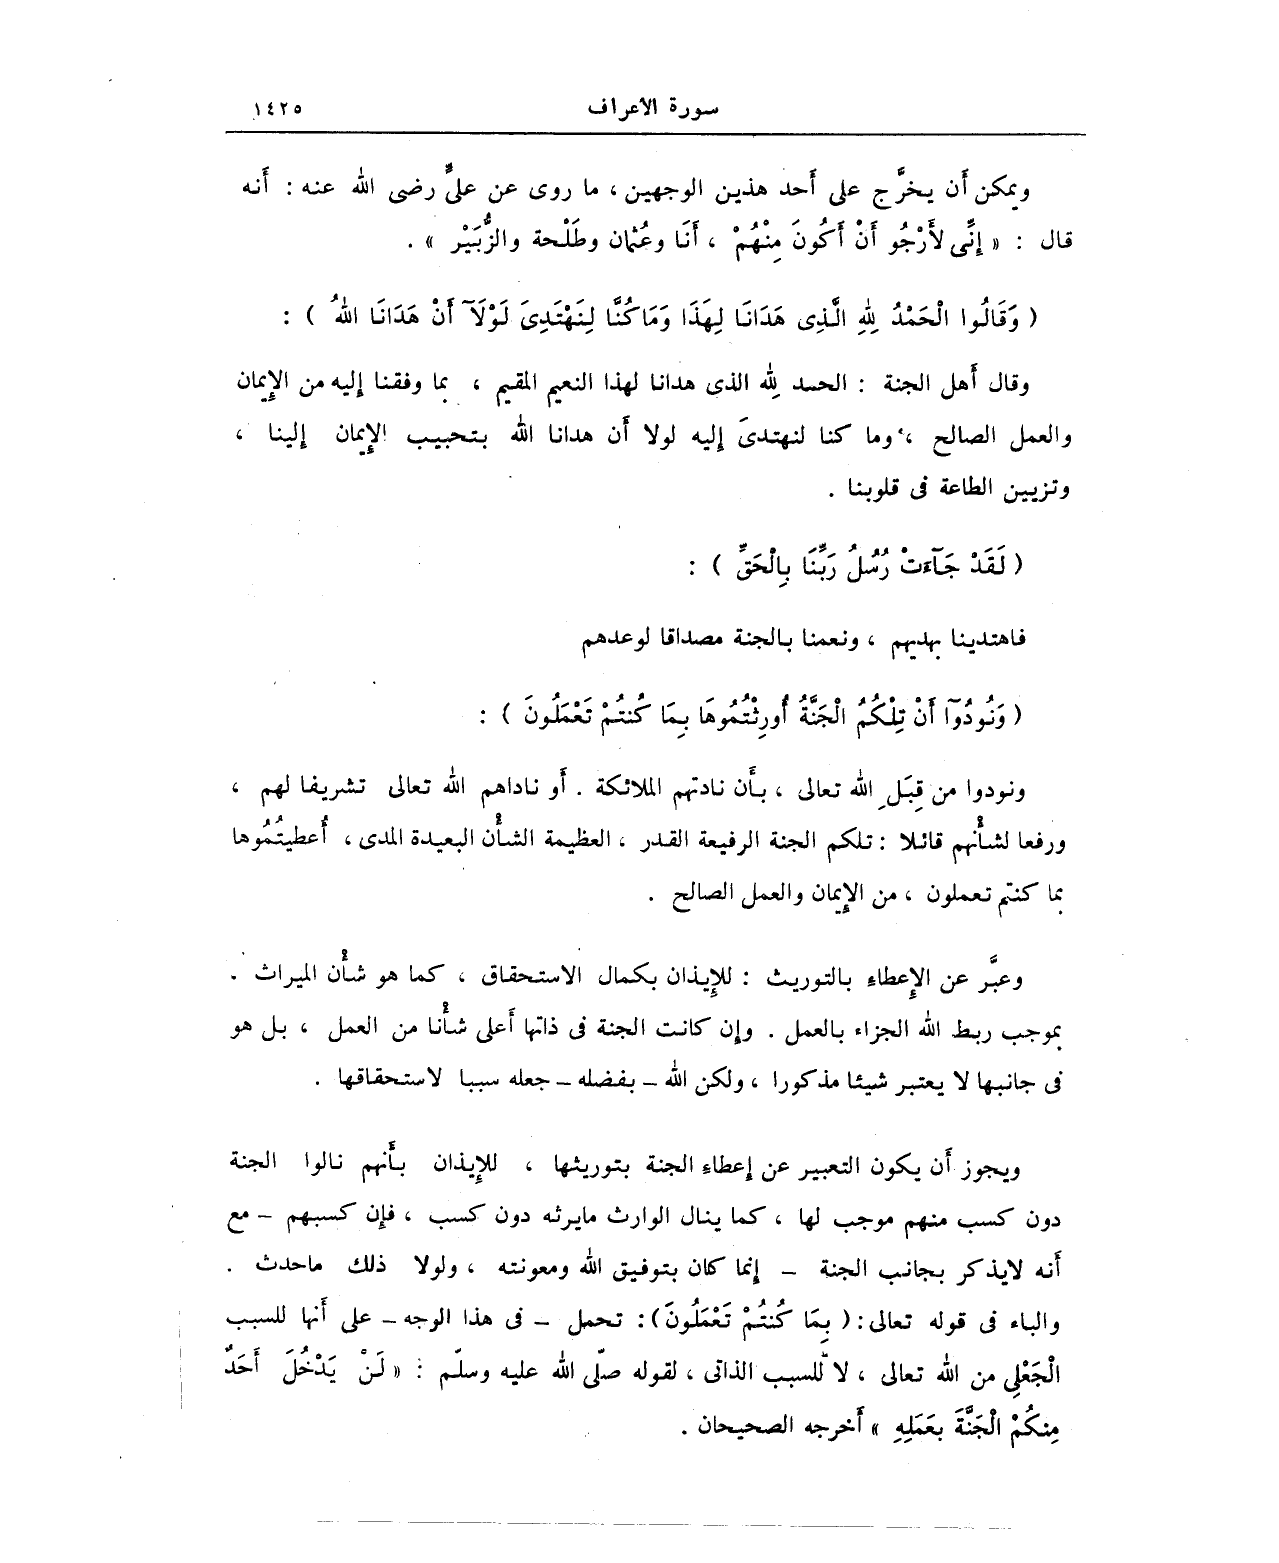 سورة الأعراف ١٤٢٥
ويمكن أن يخرَّج على أحد هذين الوجهين ، ما روى عن علىٍّ رضى الله عنه : أنه
قال : « إِنِّى لأَرْجُو أَنْ أَكُونَ مِنْهُمْ ، أَنَا وعُثْمان وطَلْحة والزُّبَيْر » .
( وَقَالُوا الْحَمْدُ لِلهِ الَّذِى هَدَانَا لِهَذَا وَمَا كُنَّا لِنَهْتَدِىَ لَوْلَآ أَنْ هَدَانَا اللهُ ) :
وقال أهل الجنة : الحمد لِله الذى هدانا لهذا النعيم المقيم ، بما وفقنا إليه من الإيمان
والعمل الصالح ، وما كنا لنهتدىَ إليه لولا أن هدانا الله بتحبيب الإيمان إلينا ،
وتزيين الطاعة فى قلوبنا .
( لَقَدْ جَآءَتْ رُسُلُ رَبِّنَا بِالْحَقِّ ) :
فاهتدينا بهديهم ، ونعمنا بالجنة مصداقا لوعدهم
( وَنُودُوٓا أَنْ تِلْكُمُ الْجَنَّةُ أُورِثْتُمُوهَا بِمَا كُنتُمْ تَعْمَلُونَ ) :
ونودوا من قِبَلِ الله تعالى ، بأن نادتهم الملائكة . أو ناداهم الله تعالى تشريفا لهم ،
ورفعا لشأْنهم قائلا : تلكم الجنة الرفيعة القدر ، العظيمة الشأْن البعيدة المدى ، أُعطيتُمُوها
بما كنتم تعملون ، من الإيمان والعمل الصالح .
وعبَّر عن الإعطاء بالتوريث : للإيذان بكمال الاستحقاق ، كما هو شأْن الميراث .
بموجب ربط الله الجزاء بالعمل . وإن كانت الجنة فى ذاتها أعلى شأْنا من العمل ، بل هو
فى جانبها لا يعتبر شيئا مذكورا ، ولكن الله – بفضله – جعله سببا لاستحقاقها .
ويجوز أن يكون التعبير عن إعطاء الجنة بتوريثها ، للإيذان بأنهم نالوا الجنة
دون كسب منهم موجب لها ، كما ينال الوارث مايرثه دون كسب ، فإن كسبهم – مع
أنه لايذكر بجانب الجنة – إنما كان بتوفيق الله ومعونته ، ولولا ذلك ماحدث .
والباء فى قوله تعالى : ( بِمَا كُنتُمْ تَعْمَلُونَ ) : تحمل – فى هذا الوجه – على أنها للسبب
الْجَعْلِى من الله تعالى ، لا للسبب الذاتى ، لقوله صلّى الله عليه وسلّم : « لَنْ يَدْخُلَ أَحَدٌ
مِنكُمْ الْجَنَّةَ بعَمَلِهِ » أخرجه الصحيحان .